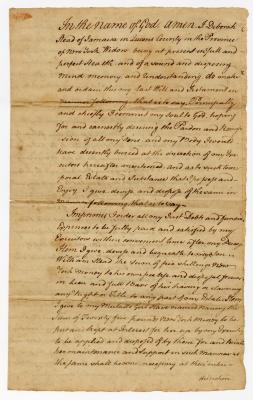 In the Name of God Amen I Deborah
Stead of Jamaica in Queens County in the Province
of New York Widow being at present in full and
perfect Health and of a sound and disposing
mind memory and Understanding do make
and ordain this my last Will and Testament in
manner following that is to say Principally
and chiefly I commit my Soul to God, hoping
for and earnestly desiring the Pardon and Remis
sion of all my Sins and my Body I would
have decently buried at the discretion of my Exe
cutors hereafter mentioned and as to such tem
poral Estate and Substance that I possess and
Enjoy I give devise and dispose of the same in
manner following that is to say
Imprimis I order all my Just Debts and funeral
Expences to be fully paid and satisfied by my
Executors within convenient time after my Decease
Item I give devise and bequeath to my Son
William Stead the Sum of five shillings New
York Money to his own proper and disposal forever
in lieu and full Barr of his having or claiming
any Right or Title to any part of my Estate Item
I give to my Mulatto Girl Slave named Nanny the
Sum of Twenty five pounds New York Money to be
put and kept at Interest for her up by my Executors
to be applied and disposed of by them for and towards
her maintenance and support in such Manner as
the same shall become necessary at their
discretion